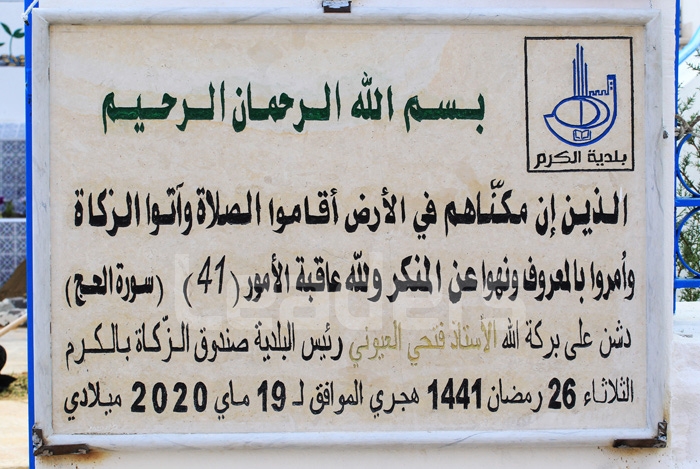 بسم الله الرحمان الرحيم
بلدية الكرم
الذين إن مكنّاهم في الأرض أقاموا الصلاة وآتوا الزكاة
وأمروا بالمعروف ونهوا عن المنكر ولله عاقبة الأمور (41) (سورة الحج)
دشن على بركة الله الأستاذ فتحي العيوني رئيس البلدية صندوق الزّكاة بالكرم
الثلاثاء 26 رمضان 1441 هجري الموافق لـ 19 ماي 2020 ميلادي
Leaders